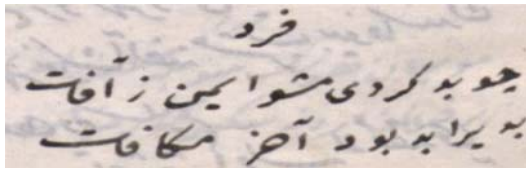 فرد
چو بد کردی مشو ایمن ز آفات
بد یرا بد بود آخر مکافات